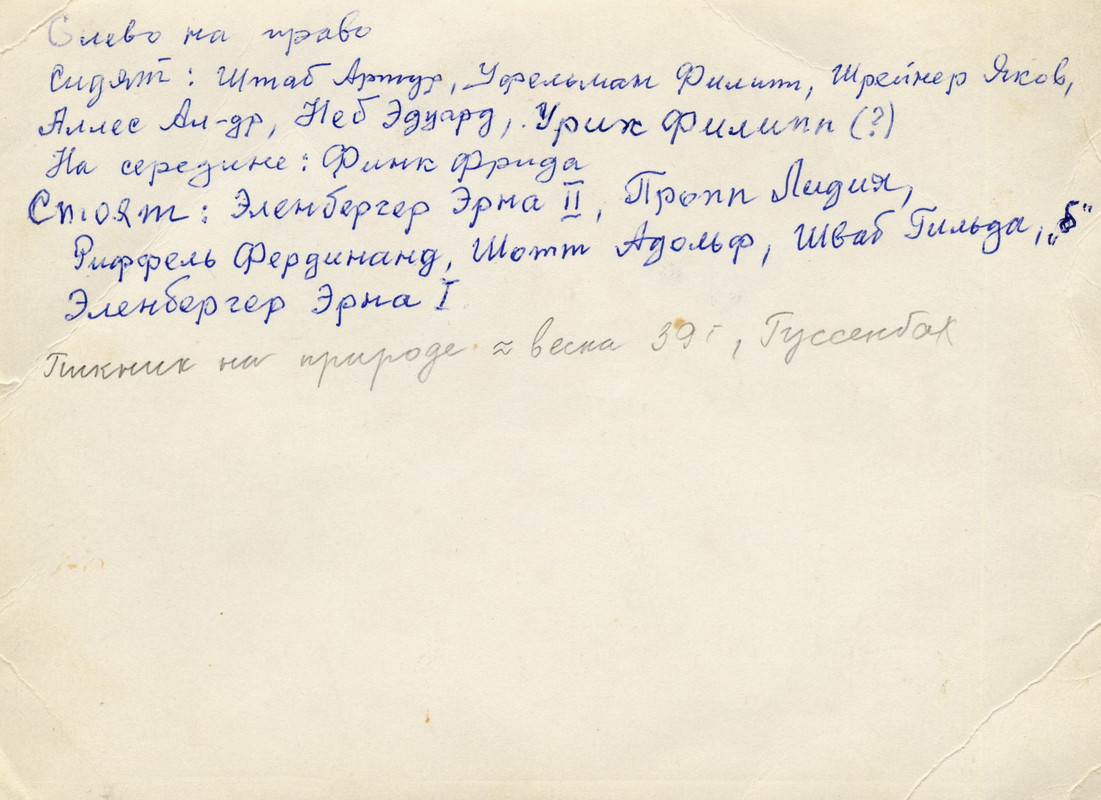 Слево на право
Сидят: Штаб Артур, Уфельман Филипп, Шрейнер Яков,
Аллес Ал-др, Неб Эдуард, Урих Филипп (?)
На середине: Финк Фрида
Стоят: Эленбергер Эрна II, Пропп Лидия,
Риффель Фердинанд, Шотт Адольф, Шваб Гильда, „б“
Эленбергер Эрна I
Пикник на природе ≈ весна 39 г, Гуссенбах